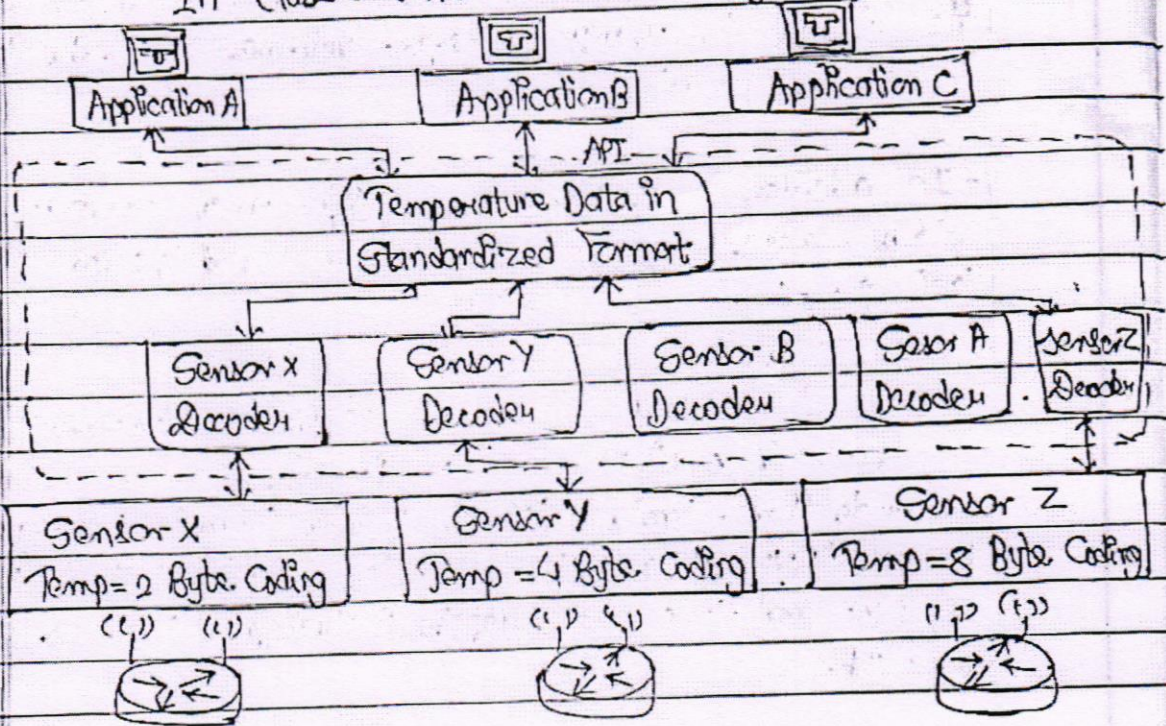 Application A
Application B
Application C
API
Temperature Data in
Standardized Format
Sensor X
Decoder
Sensor Y
Decoder
Sensor B
Decoder
Sesor A
Decoder
Sensor Z
Decoder
Sensor X
Temp=2 Byte Coding
Sensor Y
Temp=4 Byte Coding
Sensor Z
Temp=8 Byte Coding